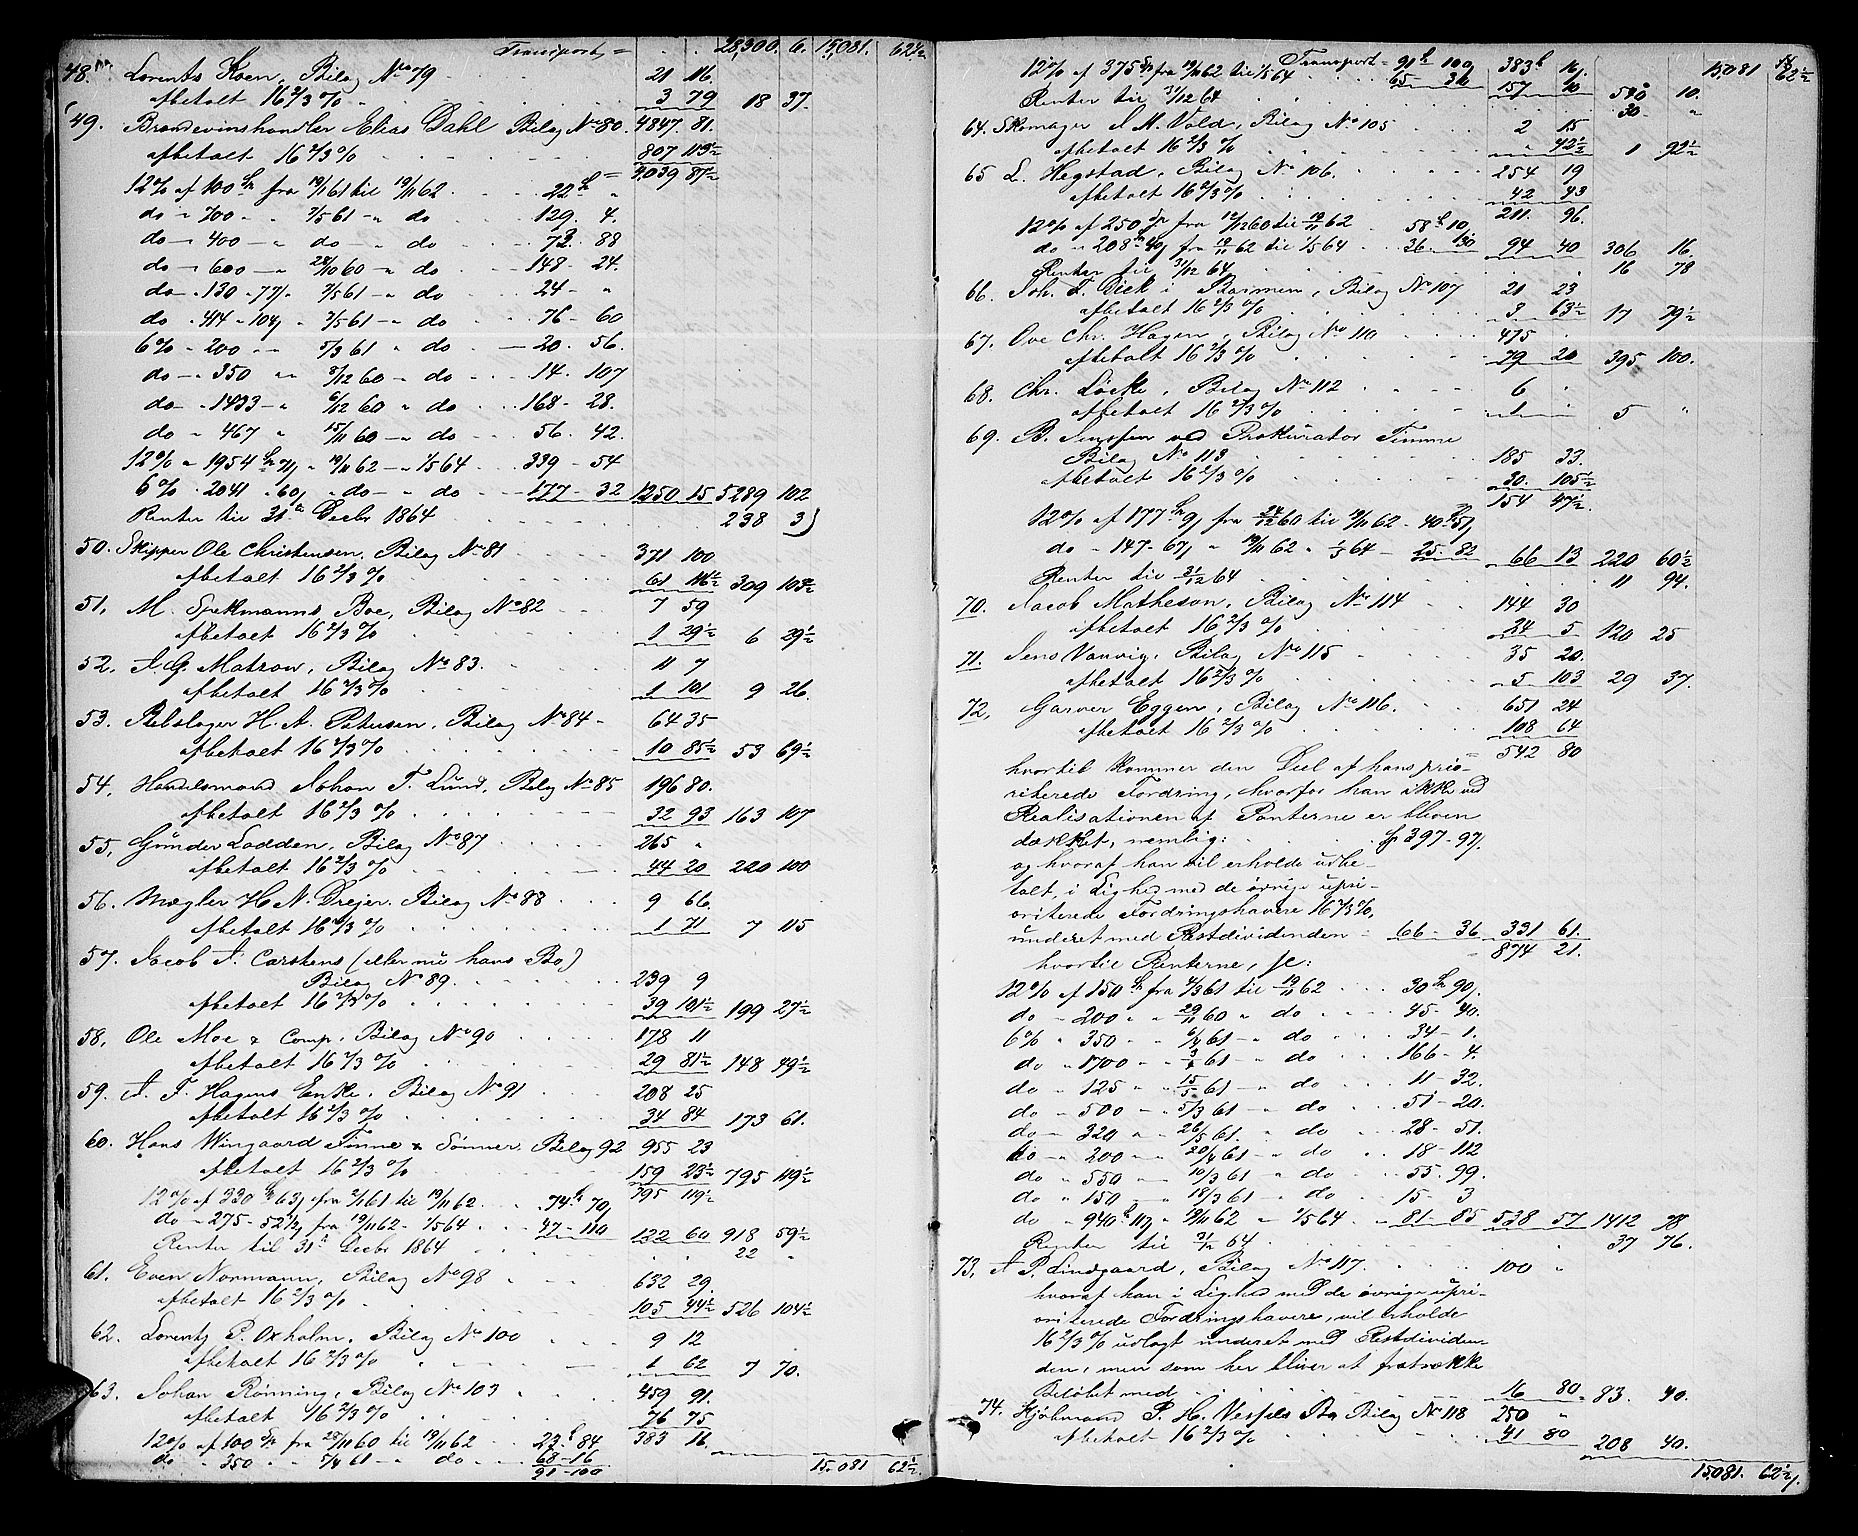 Transport = 28,300. 6. 15,081. 62½
48. Lorents Koen, Bilag No 79 21 116.
afbetalt 16 2/3 % 3 79 18 37.
49. Brændevinshandler Elias Dahl Bilag No 80. 4847. 81.
afbetalt 16 2/3 % 807 113½
= 4,039 87½
12% af 100 Sp fra 19/11 61 til 19/11 62. 22 " "
do " 700 " " 2/5 61 " do 129. 4.
do " 400 " " do " do 73. 88
do " 600 " " 28/10 60 " do 148. 24.
do " 130 " 77 " 2/5 61 " do 24 - "
do " 414 " 104 " 2/5 61 " do 76 - 60
6% " 200 " " 5/3 61 " do 20. 56.
do " 350 " " 8/12 60 " do 14. 107
do " 1433 " " 6/12 60 " do 168 - 28.
do " 467 " 15/11 60 " do 56. 42.
12% " 1954 Sp 71 " 19/11 62 " 1/5 64 339 - 54
6% " 2041 " 60 " do " do 177 - 32 1250 15 5289 102
Renter til 31te Decbr 1864 238 3
50. Skipper Ole Christensen, Bilag No 81 371 100
afbetalt 16 2/3 % 61 116½ 309 103½
51. M. Spekmanns Boe, Bilag No 82 7 59
afbetalt 16 2/3 % 1 29½ 6 29½
52. J. G. Matzow, Bilag No 83. 11 7
afbetalt 16 2/3 % 1 101 9 26.
53. Rebslager H. A. Petersen, Bilag No 84 - 64 35
afbetalt 16 2/3 % 10 85½ 53 69½
54. Handelsmand Johan T. Lund, Bilag No 85 196 80.
afbetalt 16 2/3 % 32 93 163 107
55. Gunder Lodden, Bilag No 87 265 "
afbetalt 16 2/3 % 44 20 220 100
56. Mægler H. N. Drejer, Bilag No 88 9 66.
afbetalt 16 2/3 % 1 71 7 115
57. Jacob A. Carstens (eller nu hans Bo)
Bilag No 89. 239 9
afbetalt 16 2/3 % 39 101½ 199 27½
58. Ole Moe & Comp, Bilag No 90 178 11
afbetalt 16 2/3 % 29 81½ 148 49½
59. A. F. Hagens Enke, Bilag No 91 208 25
afbetalt 16 2/3 % 34 84 173 61.
60. Hans Wingaard Finne & Sønner, Bilag 92 955 23
afbetalt 16 2/3 % 159 23½ 795 119½
12% af 330 Sp 63 fra 2/1 61 til 19/11 62. 74 70 795 119½
do " 275 - 52½ fra 19/11 62 - 1/5 64 47 - 110 122 60 918 59½
Renter til 31te Decbr 1864 22 "
61. Even Normann, Bilag No 98 632 29.
afbetalt 16 2/3 % 105 44½ 526 104½
62. Lorentz P. Oxholm, Bilag No 100 9 12
afbetalt 16 2/3 % 1 62 7 70.
63. Johan Rønning, Bilag No 103 459 91.
afbetalt 16 2/3 % 76 75
12% af 100 Sp fra 28/11 60 til 19/11 62 23 84 383 16.
do " 350 " 7/4 61 " do 68 - 16
91 - 100 15,081 62½.
Transport = 91 100 383 16 15,081 62½
12% af 375 Sp fra 19/11 62 til 1/5 64 65 36 157 10 540 10.
Renter til 31/12 64 30 "
64. Skomager J. M. Vold, Bilag No 105 2 15
afbetalt 16 2/3 % " 42½ 1 92½
65 L. Hegstad, Bilag No 106. 254 19
afbetalt 16 2/3 % 42 43
211 96.
12% af 250 Sp fra 12/12 60 til 19/11 62 58 10.
do " 208 40 fra 19/11 62 til 1/5 64 36. 30 94 40 306 16.
Renter til 31/12 64. 16 78
66. Joh. F. Dick i Barmen, Bilag No 107 21 23
afbetalt 16 2/3 % 3 63½ 17 79½
67. Ove Chr. Hagen, Bilag No 110 475 .
afbetalt 16 2/3 % 79 20 395 100.
68. Chr. Løcke, Bilag No 112 6 .
afbetalt 16 2/3 % 1 5 "
69. B. Jenssen ved Prokurator Finne
Bilag No 113 185 33.
afbetalt 16 2/3 % 30. 105½
154 47½.
12% af 177 Sp 9 fra 24/12 60 til 19/11 62 - 40 51
do " 147 - 67 " 19/11 62 " 1/5 64 - 25 - 82 66 13 220 60½
Renter til 31/12 64 11 94.
70. Jacob Matheson, Bilag No 114 144 30
afbetalt 16 2/3 % 24 5 120 25
71. Jens Vanvig, Bilag No 115 35 20.
afbetalt 16 2/3 % 5 103 29 37.
72. Garver Eggen, Bilag No 116. 651 24
afbetalt 16 2/3 % 108 64
= 542 80
hvortil kommer den Deel af hans prio-
riterede Fordring, hvorfor han ikke ved
Realisationen af Panterne er bleven
dækket, nemlig: Sp 397 - 97.
og hvoraf han vil erholde udbe-
talt, i Lighed med de øvrige upri-
oriterede Fordringshavere 16 2/3 %,
underet med Restdividenden - 66 - 36 331 61.
hvortil Renterne, : 874 21.
12% af 150 Sp fra 4/3 61 til 19/11 62 30 90.
do " 200 " " 29/11 60 " do 45 - 40.
6% " 350 " " 6/4 61 " do 34 - 1.
do " 1700 " " 3/4 61 " do 166 - 4.
do " 125 " " 15/5 61 " do 11 - 32.
do " 500 " " 5/3 61 " do 51 - 20.
do " 320 " " 26/5 61. " do 28 - 51.
do " 200 " " 20/4 61 " do 18 - 112
do " 550 " " 10/3 61 " do 55. 99.
do " 150 " " 18/3 61 " do 15 - 3
do " 940 113 " 19/11 62 " 1/5 64 81 - 85 538 57 1412 78
Renter til 31/12 64 37 76.
73. A. P. Lindgaard, Bilag No 117. 100 "
hvoraf han i Lighed med de øvrige upri-
oriterede Fordringshavere, vil erholde
16 2/3 % udlagt underet med Restdividen
den, men som her bliver at fratrække
Beløbet med 16 80 = 83. 40.
74. Kjøbmand P. H. Bo Bilag No 118 250 "
afbetalt 16 2/3 % 41 80 208 40.
15,081. 62½.